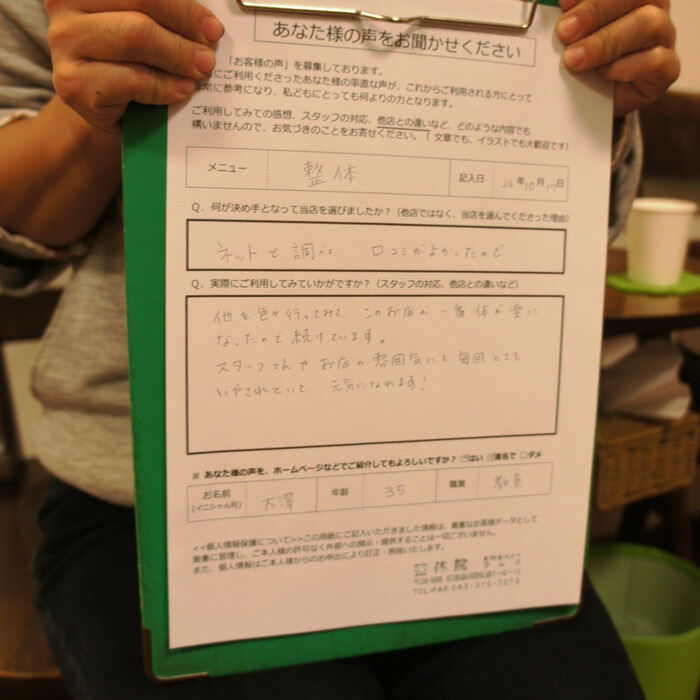 あなた様の声をお聞かせください
「お客様の声」を募集しております。
にご利用くださったあなた様の率直な声が、これからご利用される方にとって
常に参考になり、私どもにとっても何よりの力となります。
ご利用してみての感想、スタッフの対応、他店との違いなど、どのような内容でも
構いませんので、お気づきのことをお寄せください。（文章でも、イラストでも大歓迎です）
メニュー 整体 記入日 24年10月17日
Q．何が決め手となって当店を選びましたか？（他店ではなく、当店を選んでくださった理由）
ネットで調べ 口コミがよかったので
Q．実際にご利用してみていかがですか？（スタッフの対応、他店との違いなど）
他を色々行ってみて、このお店が一番体が楽に
なったので続けています。
スタッフさんやお店の雰囲気にも毎回とても
いやされていて 元気になれます！
※ あなた様の声を、ホームページなどでご紹介してもよろしいですか？ ☑はい ☑匿名で □ダメ
お名前 大澤 年齢 35 職業 教員
(イニシャル可)
<<個人情報保護について>>この用紙にご記入いただきました情報は、貴重なお客様データとして
厳重に管理し、ご本人様の許可なく外部への開示・提供することは一切ございません。
また、個人情報はご本人様からのお申出により訂正・削除いたします。
体院
TEL・FAX